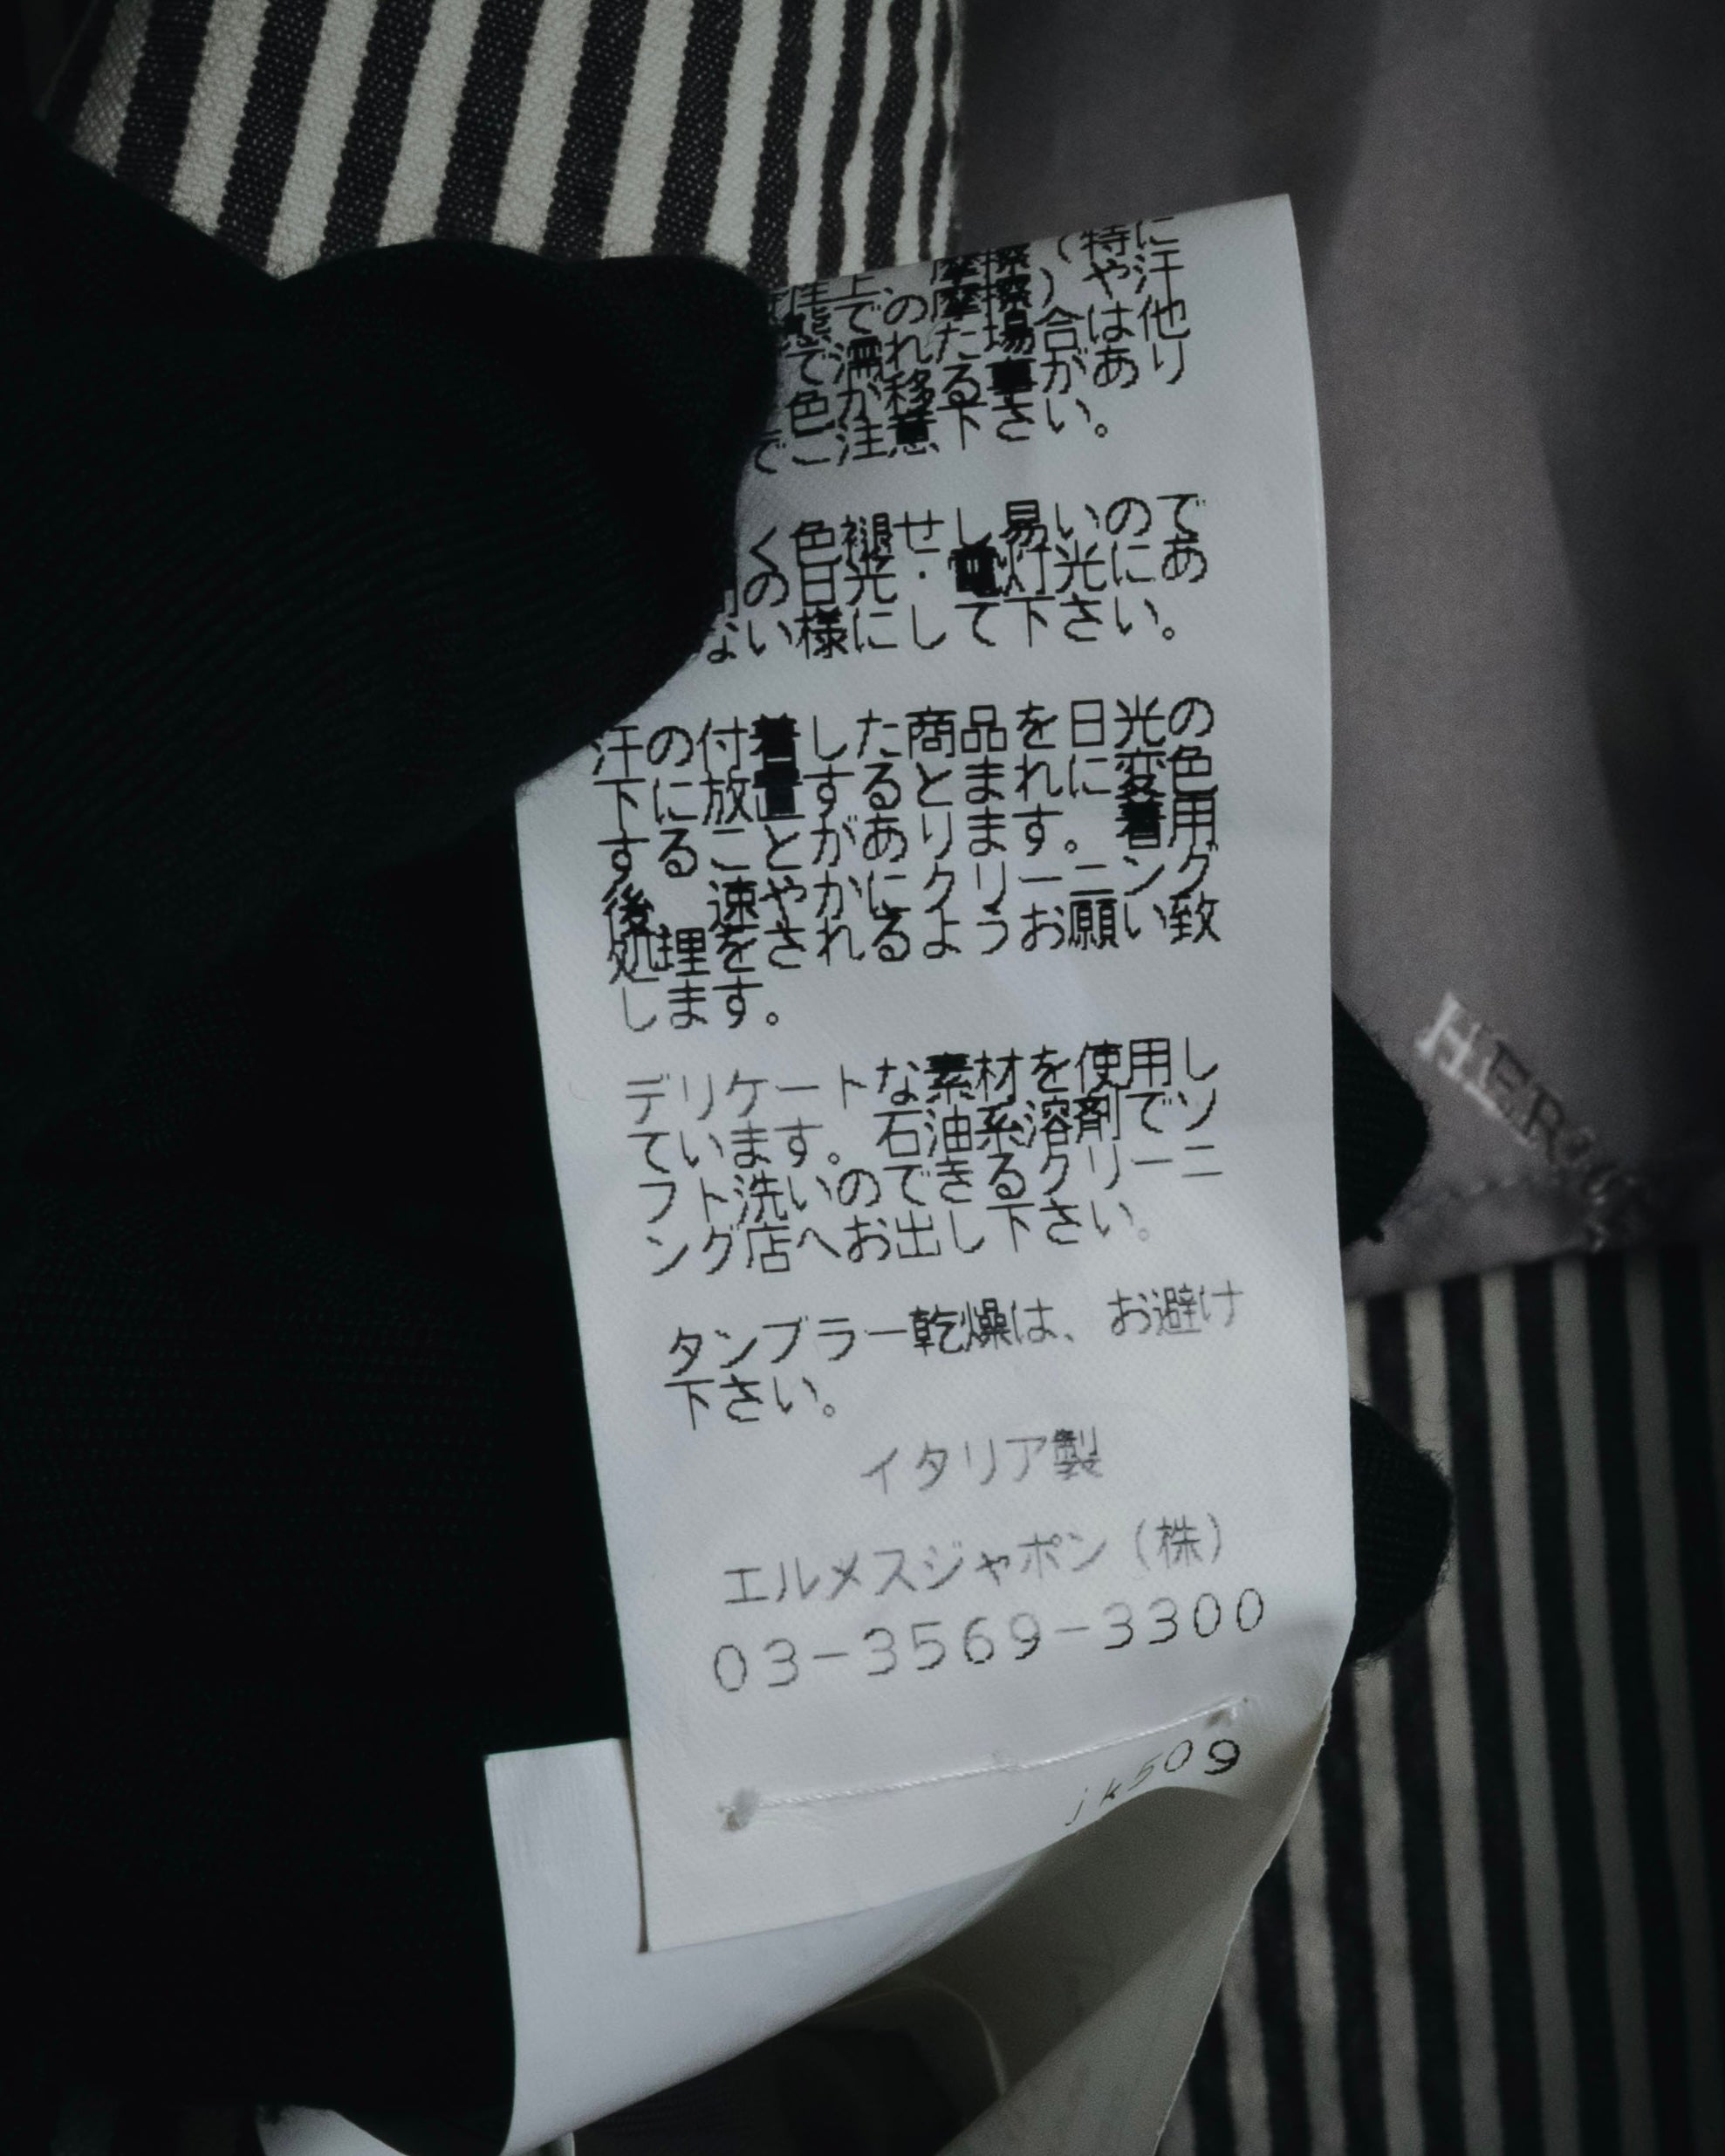 性上、摩擦(特に
態での摩擦)や汗
で濡れた場合は他
色が移る事があり
でご注意下さい。
く色褪せし易いので
の日光・電灯光にあ
ない様にして下さい。
汗の付着した商品を日光の
下に放置するとまれに変色
することがあります。着用
後、速やかにクリーニング
処理をされるようお願い致
します。
デリケートな素材を使用し
ています。石油系溶剤でソ
フト洗いのできるクリーニ
ング店へお出し下さい。
タンブラー乾燥は、お避け
下さい。
イタリア製
エルメスジャポン(株)
03-3569-3300
jk509